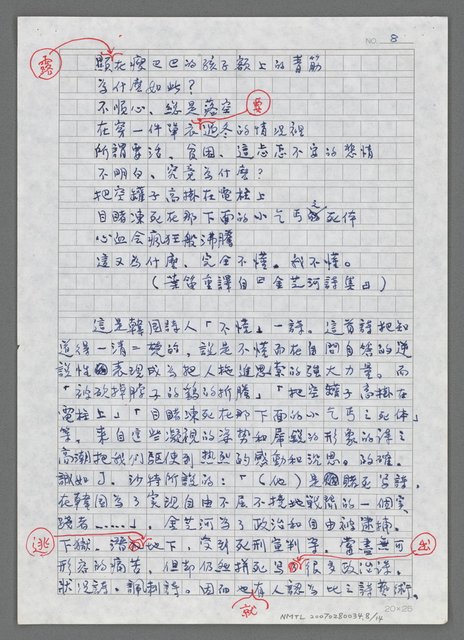 NO. 8
露
顯在瘦巴巴的孩子額上的青筋
為什麼如此?
不順心、總是落空
要
在穿一件單衣過冬的情況裡
所謂要活、貧困、這忐忑不安的悲情
不明白、究竟為什麼?
把空罐子高掛在電柱上
目睹凍死在那下面的小乞丐之死体
心血會瘋狂般沸騰
這又為什麼、完全不懂。我不懂。
(葉笛重譯自『金芝河詩集』)
這是韓國詩人「不懂」一詩。這首詩把知
道得一清二楚的,說是不懂而在自問自答的逆
說性表現成為把人拖進思索的強大力量。而
「被砍掉脖子的鷄的折騰」「把空罐子高掛在
電柱上」「目睹凍死在那下面的小乞丐之死体」
等,來自這些凝視的姿勢和犀銳的形象的詩之
高潮把我們驅使到熱烈的感動和沉思。的確,
誠如J、沙特所說的:「(他)是賭死寫詩,
在韓國為了實現自由不屈不撓地戰鬪的一個實
踐者……」。金芝河為了政治和自由被逮捕、
逃
下獄、潛地下,受到死刑宣判等,嘗盡無可
出
形容的痛苦,但却仍舊拼死寫很多政治詩、
狀況詩、諷刺詩。因而也有人認為比之詩藝術,
就
20×25
NMTL 20070280034 8/14